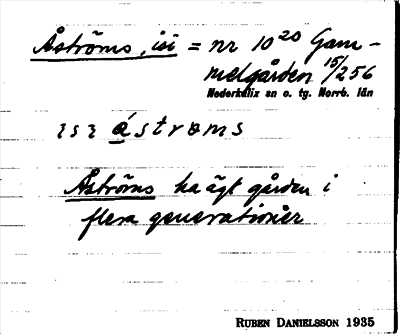 Åströms, isi = nr 10²⁰ Gam-
melgården 15/256
Nederkalix sn o. tg. Norrb. län
ısı åstrøms
Åströms ha ägt gården i
flera generationer
RUBEN DANIELSSON 1935